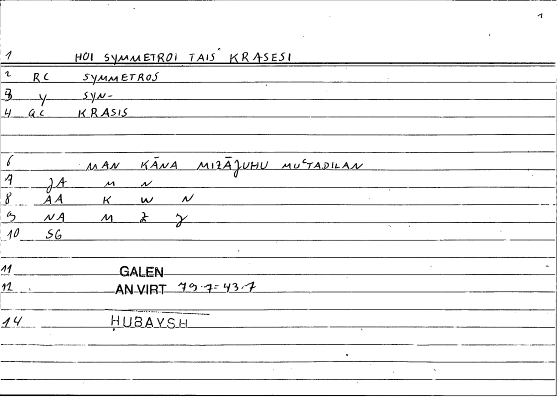 1
1 HOI SYMMETROI TAIS KRASESI
2 RC SYMMETROS
3 Y SYN-
4 GC KRASIS
6 MAN KĀNA MIZĀǦUHU MUʿTADILAN
7 ǦA M N
8 AA K W N
9 NA M Z Ǧ
10 SG
11 GALEN
12 AN VIRT 79.7=43.7
14 ḤUBAYSH